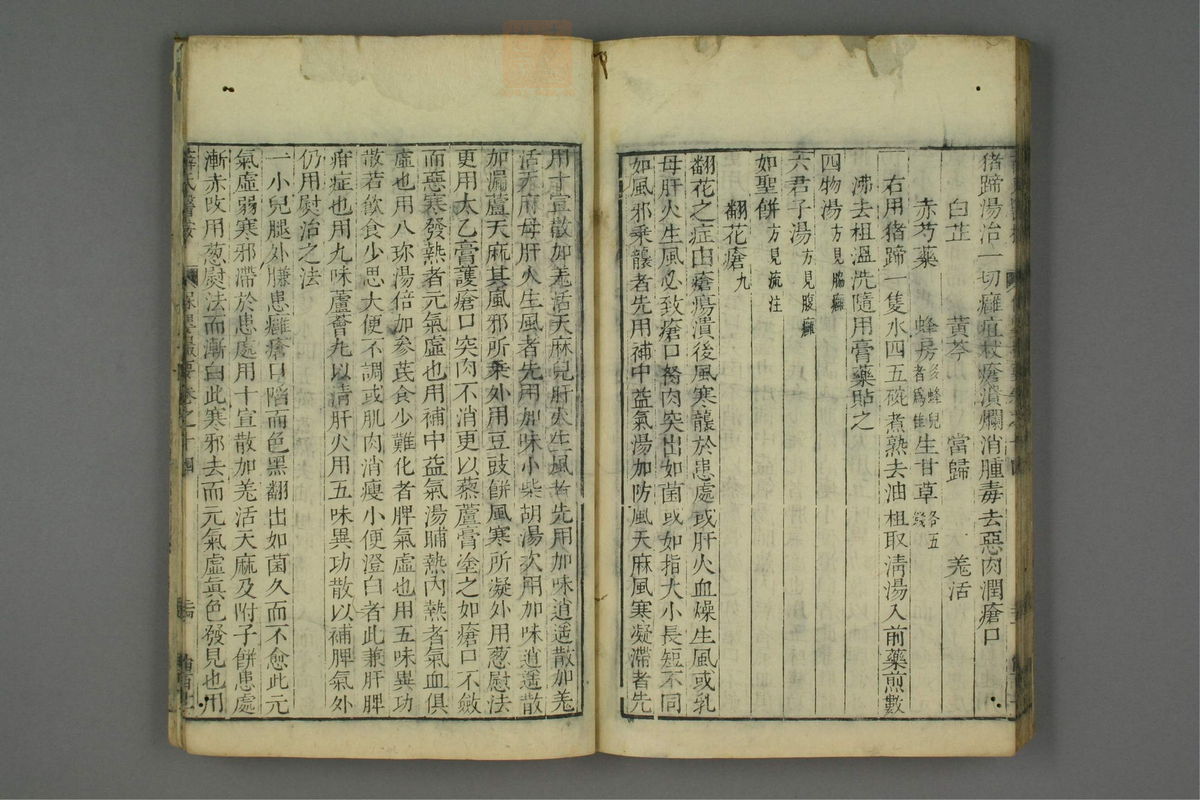 猪蹄湯治一切癰疽杖瘡潰爛消腫毒去惡肉潤瘡口
白芷 黃芩 當歸 羗活
赤芍藥 蜂房多蜂兒者爲佳 生甘草各五錢
右用猪蹄一隻水四五碗煮熟去油柤取淸湯入前藥煎數
沸去柤溫洗隨用膏藥貼之
四物湯方見腸癰
六君子湯方見腹癰
如聖餅方見流注
翻花瘡九
翻花之症由瘡瘍潰後風寒襲於患處或肝火血燥生風或乳
母肝火生風必致瘡口胬肉突出如菌或如指大小長短不同
如風邪乘襲者先用補中益氣湯加防風天麻風寒凝滯者先
用十宣散加羗活天麻兒肝火生風者先用加味逍遥散加羗
活天麻母肝火生風者先用加味小柴胡湯次用加味逍遥散
加漏蘆天麻其風邪所乘外用豆豉餅風寒所凝外用葱熨法
更用太乙膏護瘡口突肉不消更以藜蘆膏塗之如瘡口不斂
而惡寒發熱者元氣虛也用補中益氣湯晡熱內熱者氣血俱
虛也用八珍湯倍加參芪食少難化者脾氣虛也用五味異功
散若飲食少思大便不調或肌肉消瘦小便澄白者此兼肝脾
疳症也用九味蘆薈丸以淸肝火用五味異功散以補脾氣外
仍用熨治之法
一小兒腿外臁患癰瘡口陷而色黑翻出如菌久而不愈此元
氣虛弱寒邪滯於患處用十宣散加羗活天麻及附子餅患處
漸赤改用葱熨法而漸白此寒邪去而元氣虛眞色發見也用
薛氏醫案 保嬰撮要卷之十四